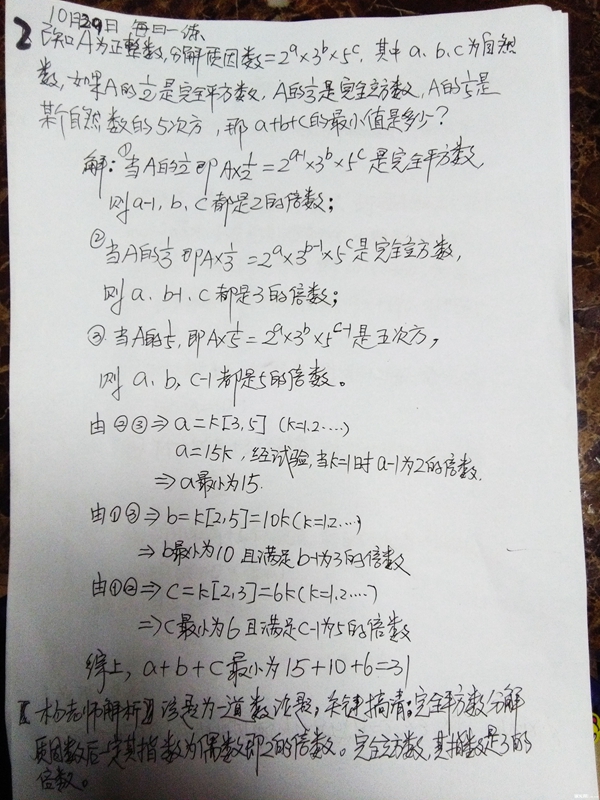 10月29日 每日一练
2 已知A为正整数,分解质因数=2^a×3^b×5^c,其中a、b、c为自然
数,如果A的1/2是完全平方数,A的1/3是完全立方数,A的1/5是
某个自然数的5次方,那a+b+c的最小值是多少?
解:①当A的1/2即A×1/2=2^(a-1)×3^b×5^c是完全平方数,
则a-1,b、c都是2的倍数;
②当A的1/3即A×1/3=2^a×3^(b-1)×5^c是完全立方数,
则a、b-1、c都是3的倍数;
③当A的1/5,即A×1/5=2^a×3^b×5^(c-1)是五次方,
则a、b,c-1都是5的倍数。
由②③⇒a=k[3,5] (k=1,2....)
a=15k,经试验,当k=1时a-1为2的倍数.
⇒a最小为15.
由①③⇒b=k[2,5]=10k(k=1,2...)
⇒b最小为10且满足b-1为3的倍数
由①②⇒c=k[2,3]=6k(k=1,2....)
⇒c最小为6且满足c-1为5的倍数
综上,a+b+c最小为15+10+6=31
【杨老师解析】该题为一道数论题,关键搞清:完全平方数分解
质因数后一定其指数为偶数即2的倍数。完全立方数,其指数是3的
倍数。